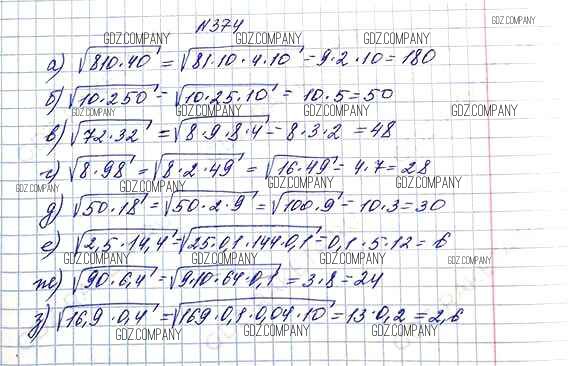 N374
GDZ.COMPANY
GDZ.COMPANY GDZ.COMPANY GDZ.COMPANY
а) √810·40 = √81·10·4·10 = 9·2·10 = 180
б) √10·250 = √10·25·10 = 10·5 = 50
GDZ.COMPANY GDZ.COMPANY GDZ.COMPANY GDZ.COMPANY
в) √72·32 = √8·9·8·4 = 8·3·2 = 48
г) √8·98 = √8·2·49 = √16·49 = 4·7 = 28
GDZ.COMPANY GDZ.COMPANY GDZ.COMPANY GDZ.COMPANY
д) √50·18 = √50·2·9 = √100·9 = 10·3 = 30
е) √2,5·14,4 = √25·0,1·144·0,1 = 0,1·5·12 = 6
GDZ.COMPANY GDZ.COMPANY GDZ.COMPANY GDZ.COMPANY
ж) √90·6,4 = √9·10·64·0,1 = 3·8 = 24
з) √16,9·0,4 = √169·0,1·0,04·10 = 13·0,2 = 2,6
GDZ.COMPANY GDZ.COMPANY GDZ.COMPANY